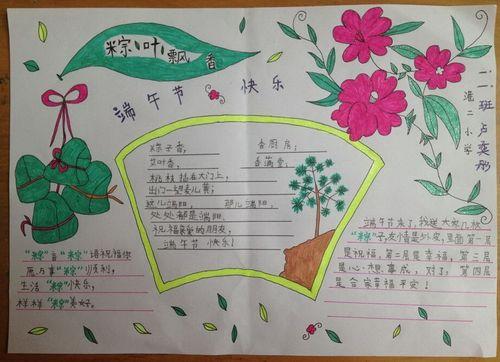 粽叶飘香
端午节快乐
二、班 卢奕彤
淮二小学
粽子香, 香厨房;
艾叶香, 香满堂。
桃枝插在大门上,
出门一望麦儿黄;
这儿端阳, 那儿端阳,
处处都是端阳。
祝福亲爱的朋友,
端午节快乐!
“粽”言“粽”语祝福您
愿万事“粽”顺利,
生活“粽”快乐,
样样“粽”美好。
端午节来了,我送大家几枚
“粽”子,友情是外衣,里面第一层
是祝福,第二层是幸福,第三层
是心想事成,对了,第四层
是合家幸福平安!